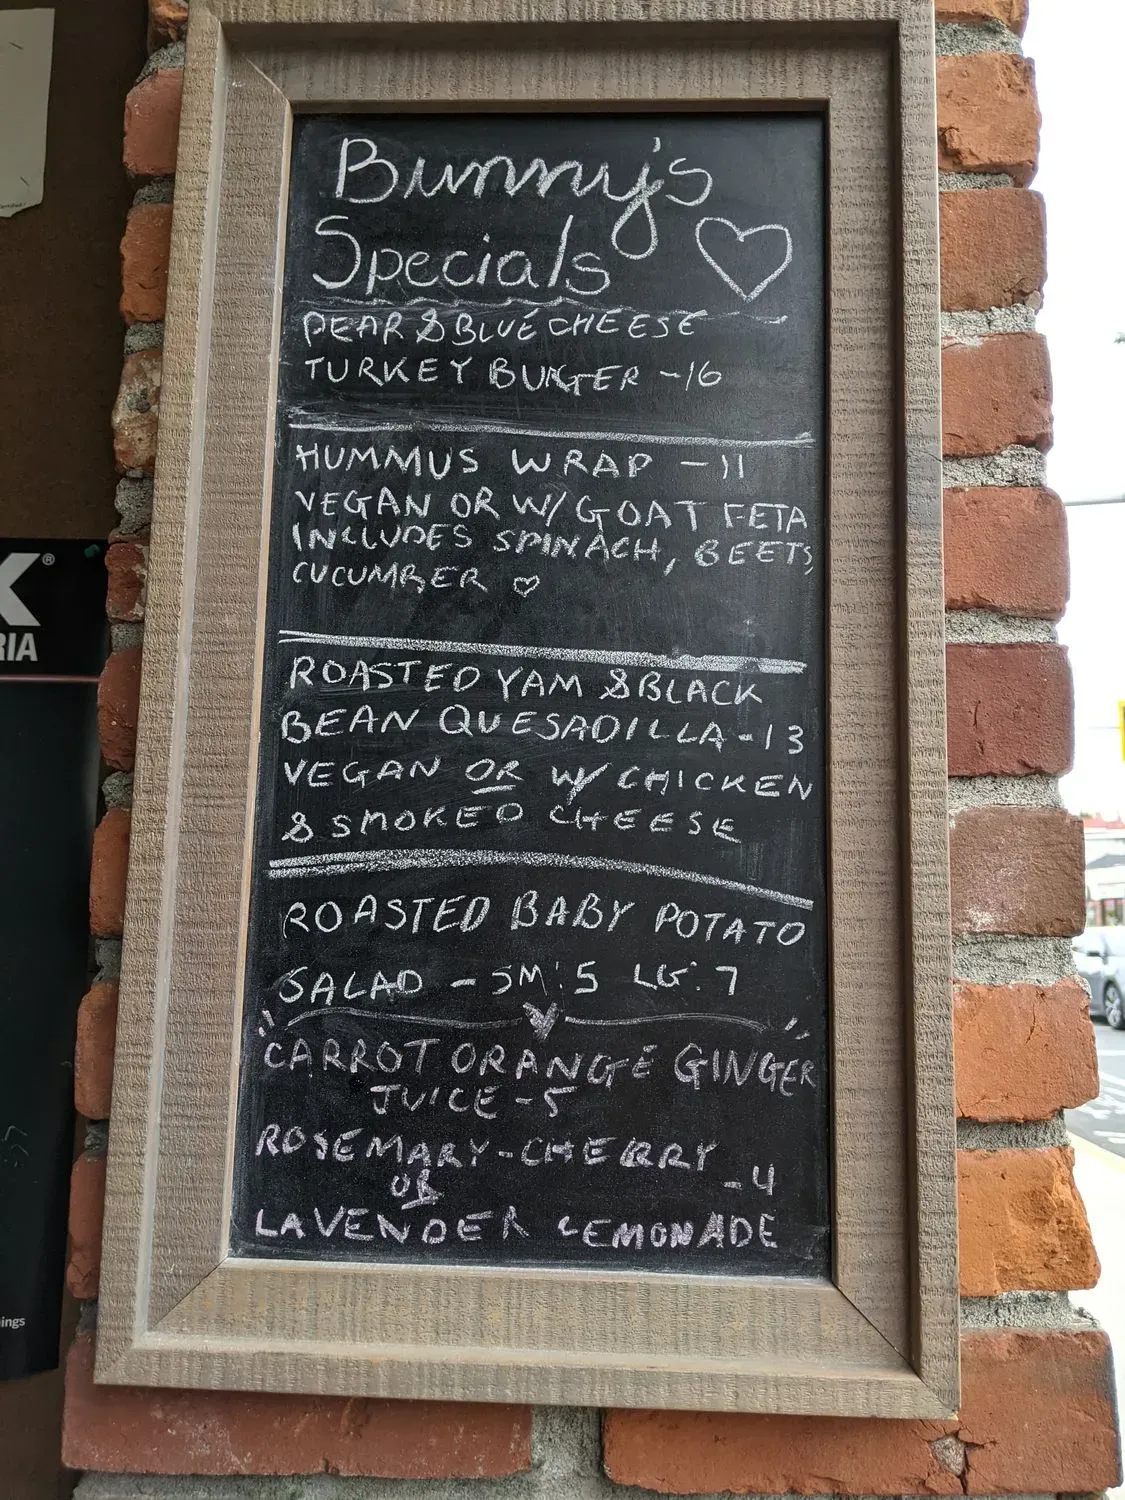 Bunny's
Specials
PEAR & BLUE CHEESE
TURKEY BURGER - 16
HUMMUS WRAP - 11
VEGAN OR W/ GOAT FETA
INCLUDES SPINACH, BEETS,
CUCUMBER
ROASTED YAM & BLACK
BEAN QUESADILLA - 13
VEGAN OR W/ CHICKEN
& SMOKED CHEESE
ROASTED BABY POTATO
SALAD - SM: 5 LG: 7
CARROT ORANGE GINGER
JUICE - 5
ROSEMARY-CHERRY
OR - 4
LAVENDER LEMONADE
K®
RIA
ings